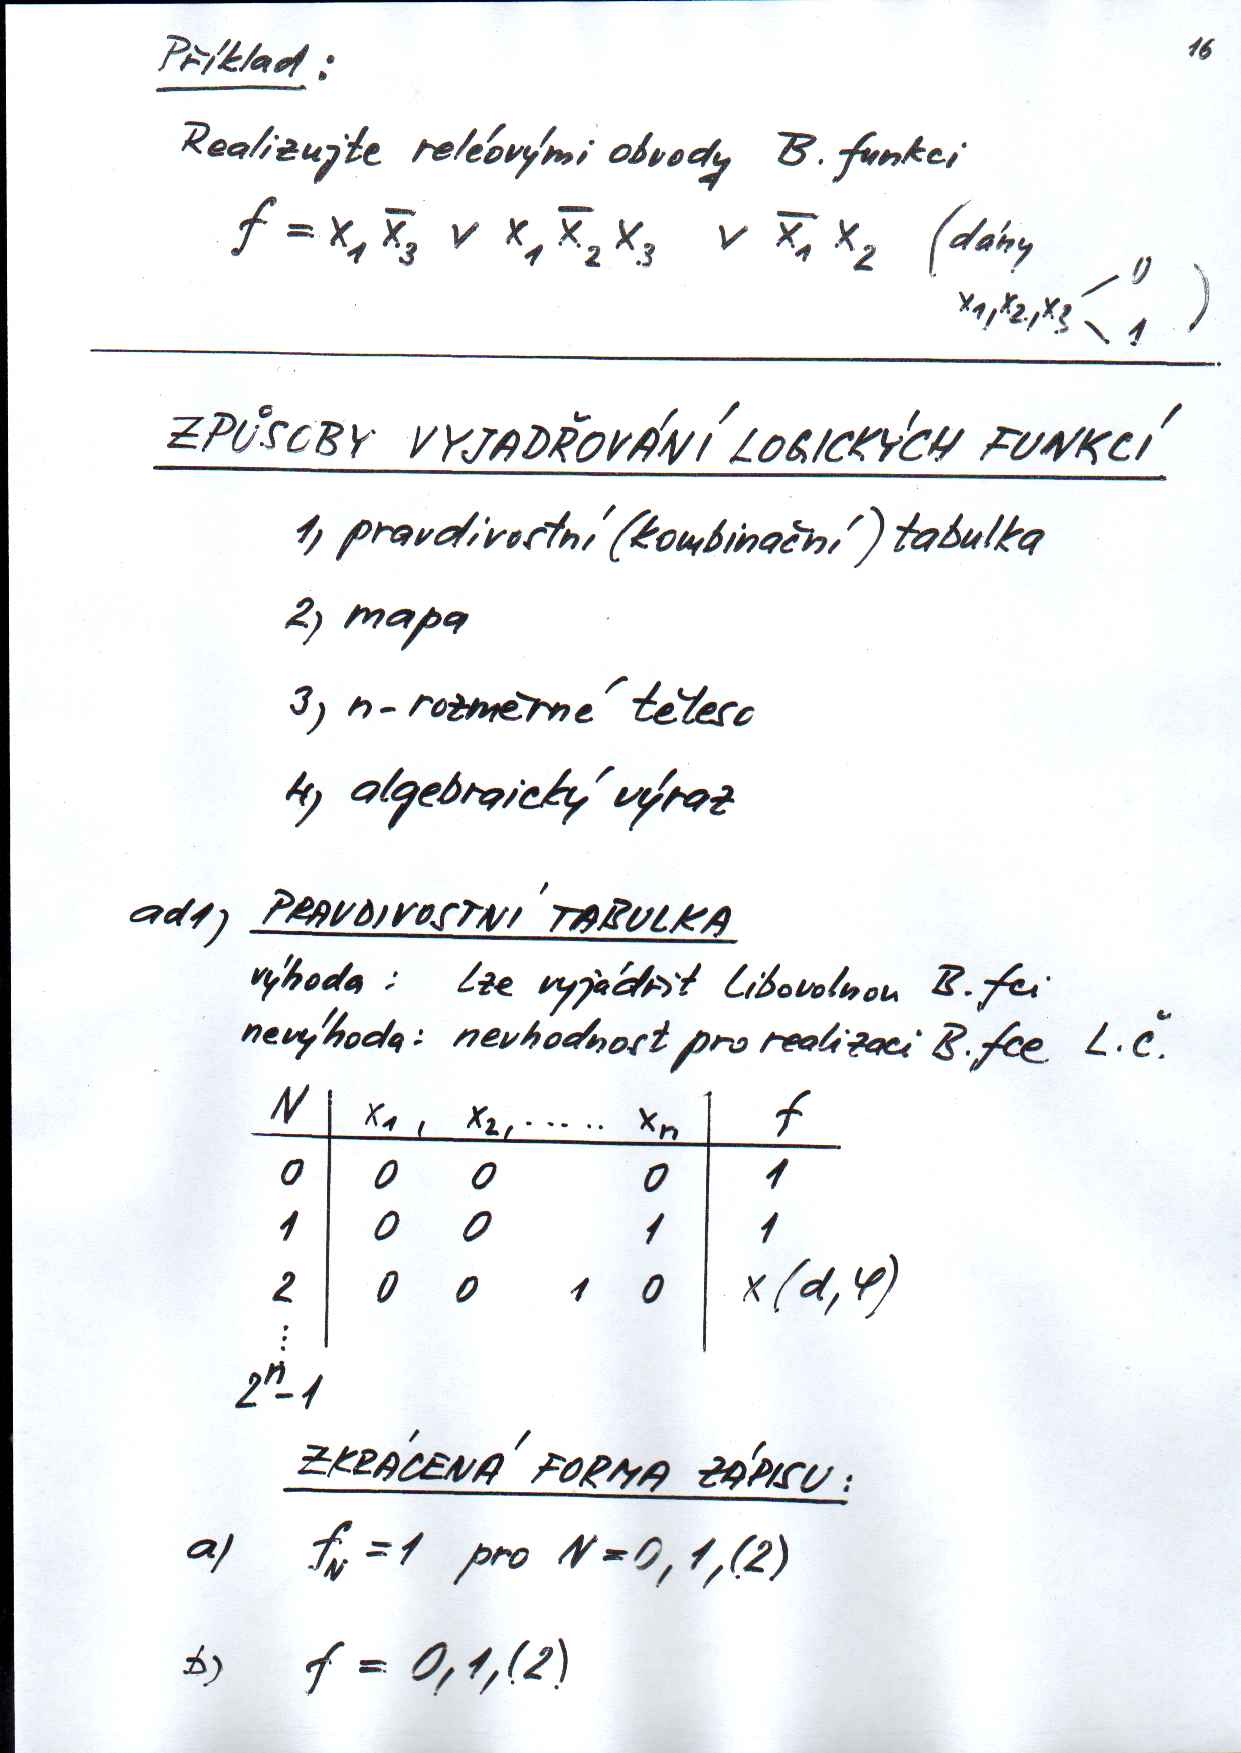 16
Příklad:
Realizujte reléovými obvody B. funkci
f = x₁ x̅₃ v x₁ x̅₂ x₃ v x̅₁ x₂ (dány
x₁, x₂, x₃ 0 1 )
ZPŮSOBY VYJADŘOVÁNÍ LOGICKÝCH FUNKCÍ
1, pravdivostní (kombinační) tabulka
2, mapa
3, n-rozměrné těleso
4, algebraický výraz
ad1, PRAVDIVOSTNÍ TABULKA
výhoda: Lze vyjádřit Libovolnou B. fci
nevýhoda: nevhodnost pro realizaci B. fce L.Č.
N x₁, x₂, ..... xₙ f
0 0 0 0 1
1 0 0 1 1
2 0 0 1 0 x(d, φ)
⋮
2ⁿ-1
ZKRÁCENÁ FORMA ZÁPISU:
a) f_N = 1 pro N = 0, 1, (2)
b) f = 0, 1, (2)